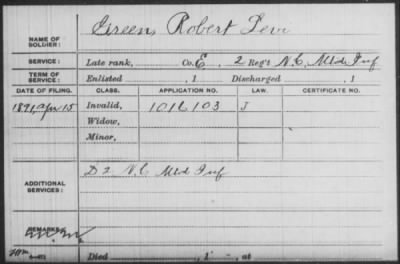 NAME OF SOLDIER: Green, Robert Levi
SERVICE: Late rank, Co. E, 2 Reg't N.C. Mtd Inf
TERM OF SERVICE: Enlisted , 1 Discharged , 1
DATE OF FILING. CLASS. APPLICATION NO. LAW. CERTIFICATE NO.
1891, Apr 15 Invalid, 1016103 J
Widow,
Minor,
ADDITIONAL SERVICES: D 2 N.C Mtd Inf
REMARKS:
Died , 1 , at